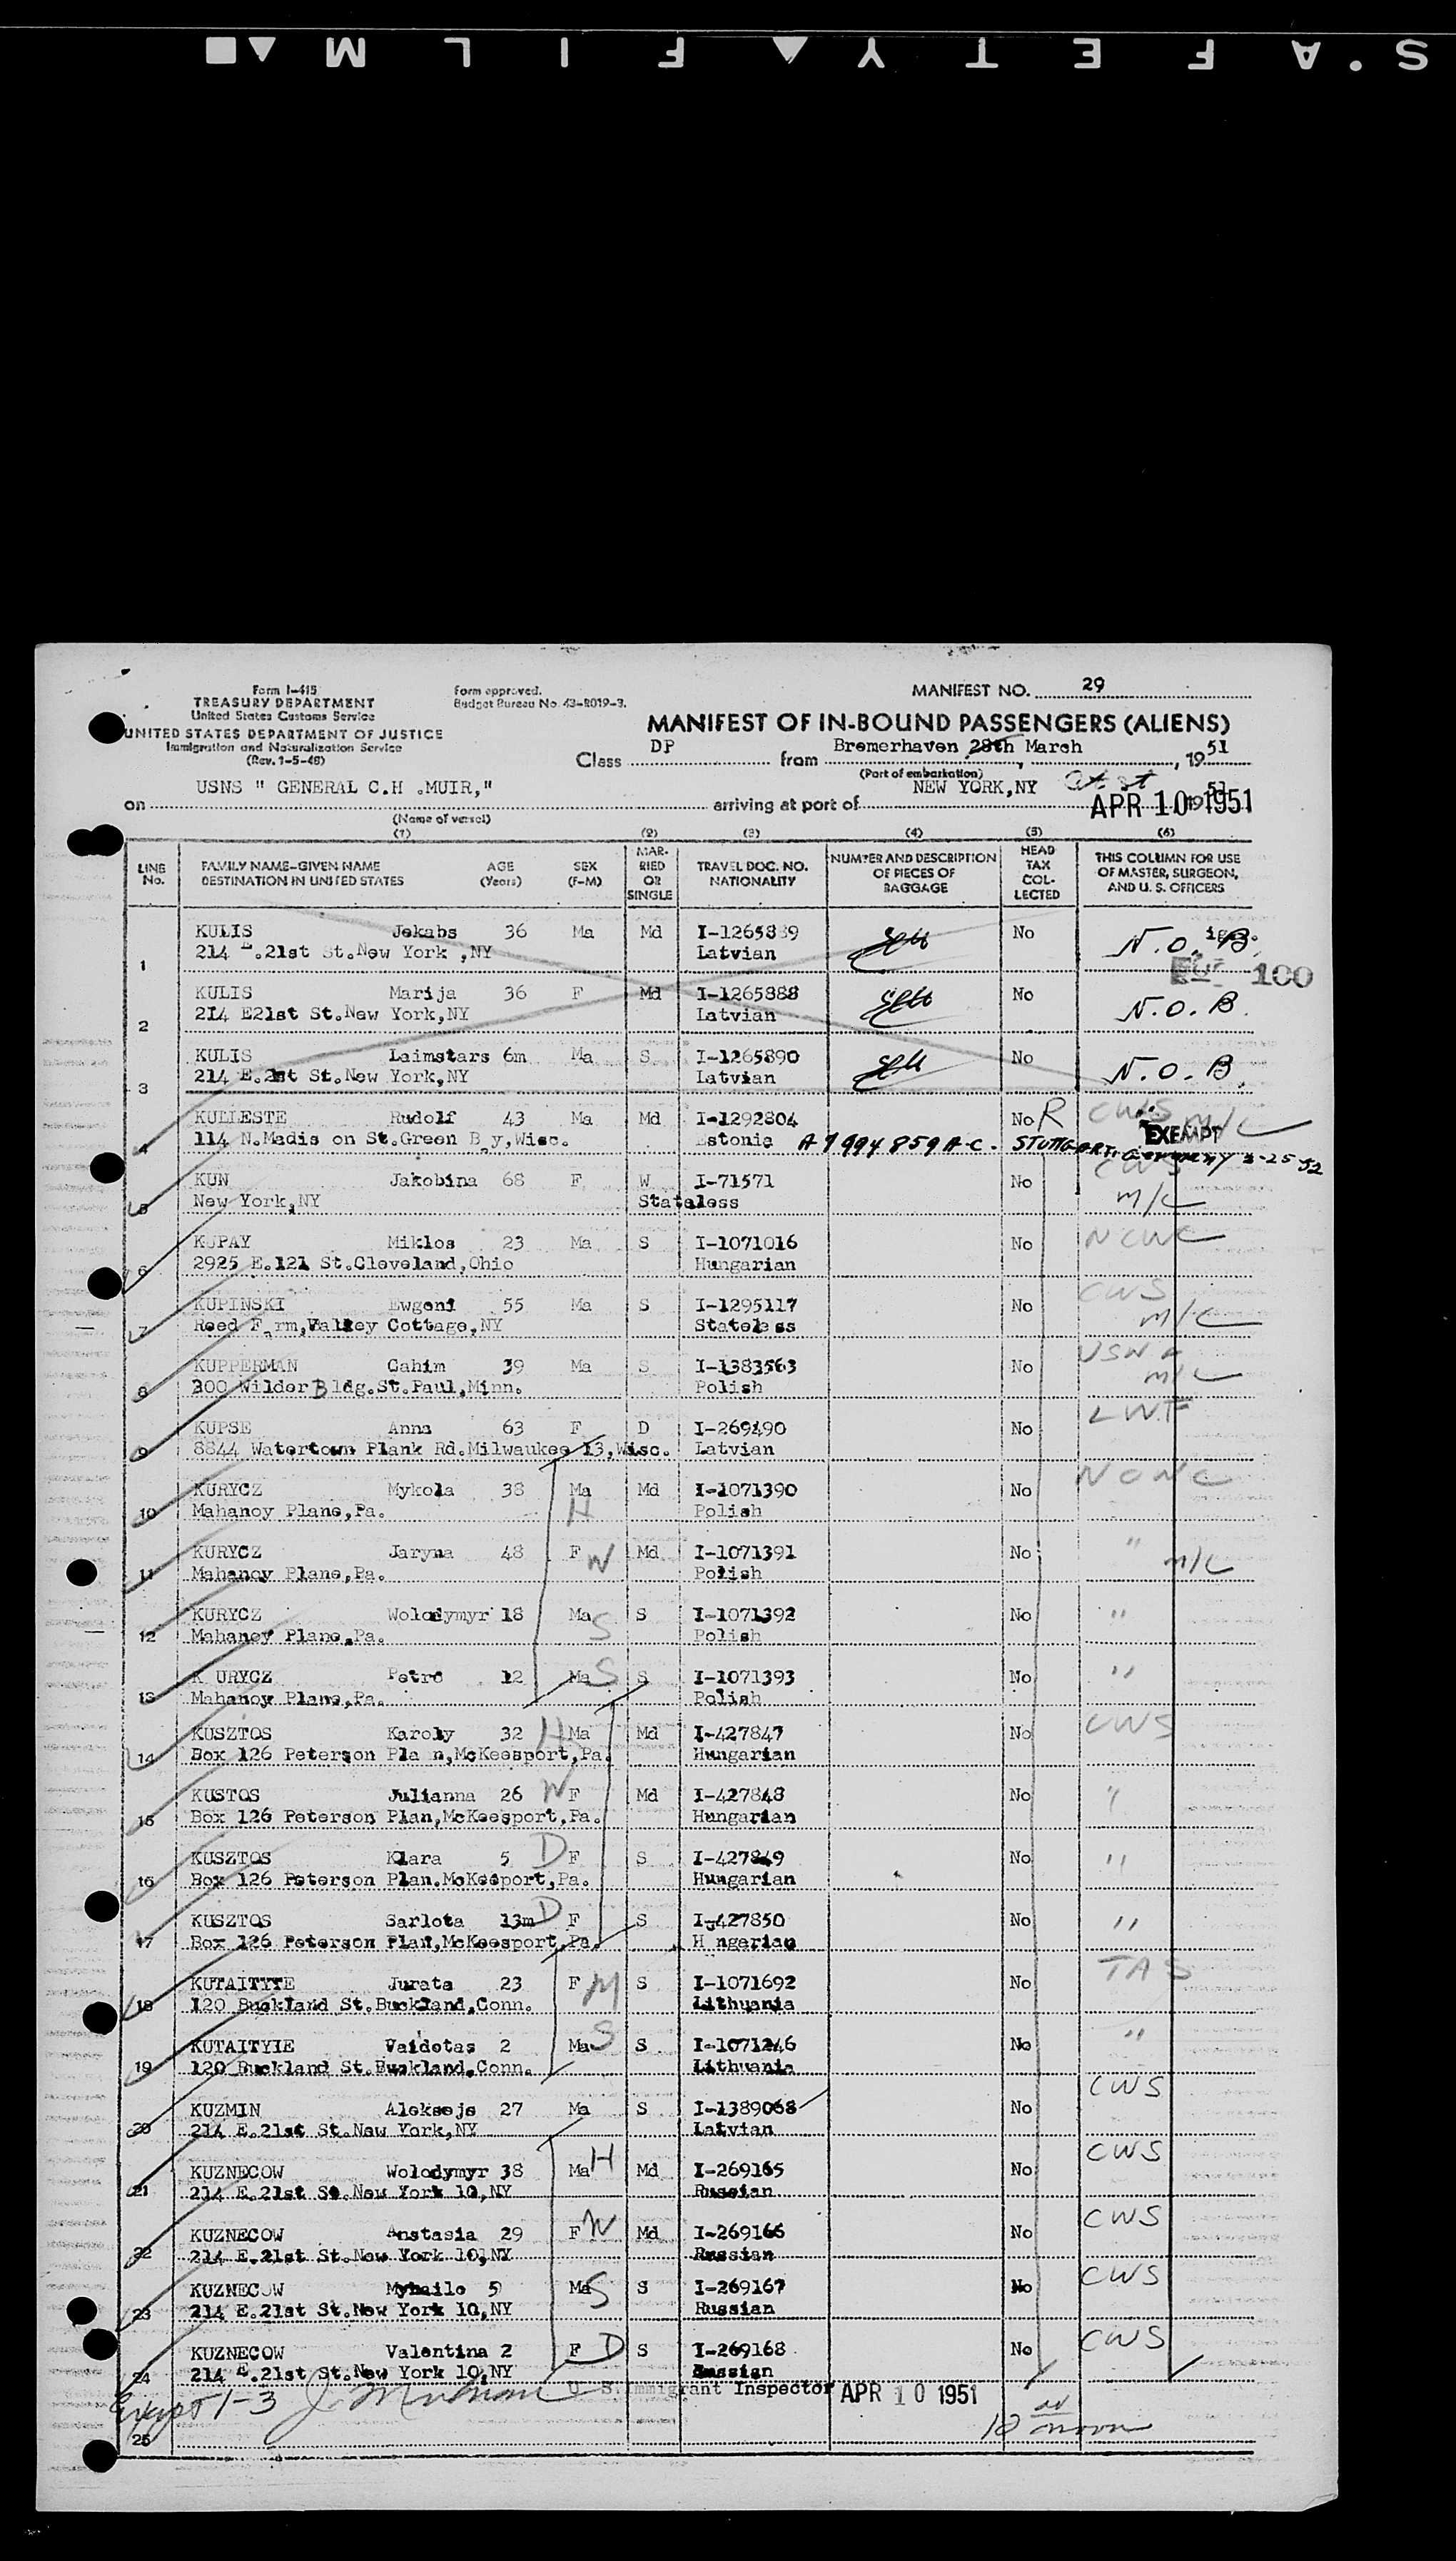 S.AFETY FILM
Form I-415
TREASURY DEPARTMENT
United States Customs Service
UNITED STATES DEPARTMENT OF JUSTICE
Immigration and Naturalization Service
(Rev. 1-5-48)
Form approved.
Budget Bureau No. 43-R019-3.
MANIFEST NO. 29
MANIFEST OF IN-BOUND PASSENGERS (ALIENS)
Class DP from Bremerhaven 28th March, 1951
(Port of embarkation)
on USNS " GENERAL C.H .MUIR," arriving at port of NEW YORK,NY APR 10 1951
(Name of vessel)
(1) (2) (3) (4) (5) (6)
LINE No. FAMILY NAME–GIVEN NAME DESTINATION IN UNITED STATES AGE (Years) SEX (F-M) MARRIED OR SINGLE TRAVEL DOC. NO. NATIONALITY NUMBER AND DESCRIPTION OF PIECES OF BAGGAGE HEAD TAX COLLECTED THIS COLUMN FOR USE OF MASTER, SURGEON, AND U. S. OFFICERS
KULIS Jekabs 36 Ma Md I-1265889 No N.O.B.
1 214 E.21st St.New York ,NY Latvian 100
KULIS Marija 36 F Md I-1265888 No N.O.B.
2 214 E21st St.New York,NY Latvian
KULIS Laimstars 6m Ma S I-1265890 No N.O.B.
3 214 E.21st St.New York,NY Latvian
KULLESTE Rudolf 43 Ma Md I-1292804 No R CWS M/C
4 114 N.Madis on St.Green B y,Wisc. Estonia A7994859 A-C. STUTTGART, Germany 2-25-52 EXEMPT
KUN Jakobina 68 F W I-71571 No CWS
5 New York,NY Stateless M/C
KUPAY Miklos 23 Ma S I-1071016 No NCWC
6 2925 E.121 St.Cleveland,Ohio Hungarian
KUPINSKI Ewgeni 55 Ma S I-1295117 No CWS
7 Reed F rm,Valley Cottage,NY Stateless M/C
KUPPERMAN Cahim 39 Ma S I-1383563 No USNA
8 300 Wilder Bldg.St.Paul,Minn. Polish M/C
KUPSE Anna 63 F D I-269490 No LWF
9 8844 Watertown Plank Rd.Milwaukee 13,Wisc. Latvian
KURYCZ Mykola 38 Ma H Md I-1071390 No NCWC
10 Mahanoy Plane,Pa. Polish
KURYCZ Jaryna 48 F W Md I-1071391 No "
11 Mahanoy Plane,Pa. Polish M/C
KURYCZ Wolodymyr 18 Ma S S I-1071392 No "
12 Mahanoy Plane,Pa. Polish
K URYCZ Petro 12 Ma S S I-1071393 No "
13 Mahanoy Plane,Pa. Polish
KUSZTOS Karoly 32 H Ma Md I-427847 No CWS
14 Box 126 Peterson Pla n,McKeesport,Pa. Hungarian
KUSTOS Julianna 26 W F Md I-427848 No "
15 Box 126 Peterson Plan,McKeesport,Pa. Hungarian
KUSZTOS Klara 5 D F S I-427849 No "
16 Box 126 Peterson Plan.McKeesport,Pa. Hungarian
KUSZTOS Sarlota 13m D F S I-427850 No "
17 Box 126 Peterson Plan,McKeesport,Pa. H ngarian
KUTAITYTE Jurata 23 F M S I-1071692 No TAS
18 120 Buckland St.Buckland,Conn. Lithuania
KUTAITYIE Vaidotas 2 Ma S S I-1071246 No "
19 120 Buckland St.Buckland,Conn. Lithuania
KUZMIN Aleksejs 27 Ma S I-1389068 No CWS
20 214 E.21st St.New York,NY Latvian
KUZNECOW Wolodymyr 38 Ma H Md I-269165 No CWS
21 214 E.21st St.New York 10,NY Russian
KUZNECOW Anstasia 29 F W Md I-269166 No CWS
22 214 E.21st St.New York 10,NY Russian
KUZNECOW Myhailo 5 Ma S S I-269167 No CWS
23 214 E.21st St.New York 10,NY Russian
KUZNECOW Valentina 2 F D S I-269168 No CWS
24 214 E.21st St.New York 10,NY Russian
Except 1-3 U S Immigrant Inspector APR 10 1951
25 12 noon